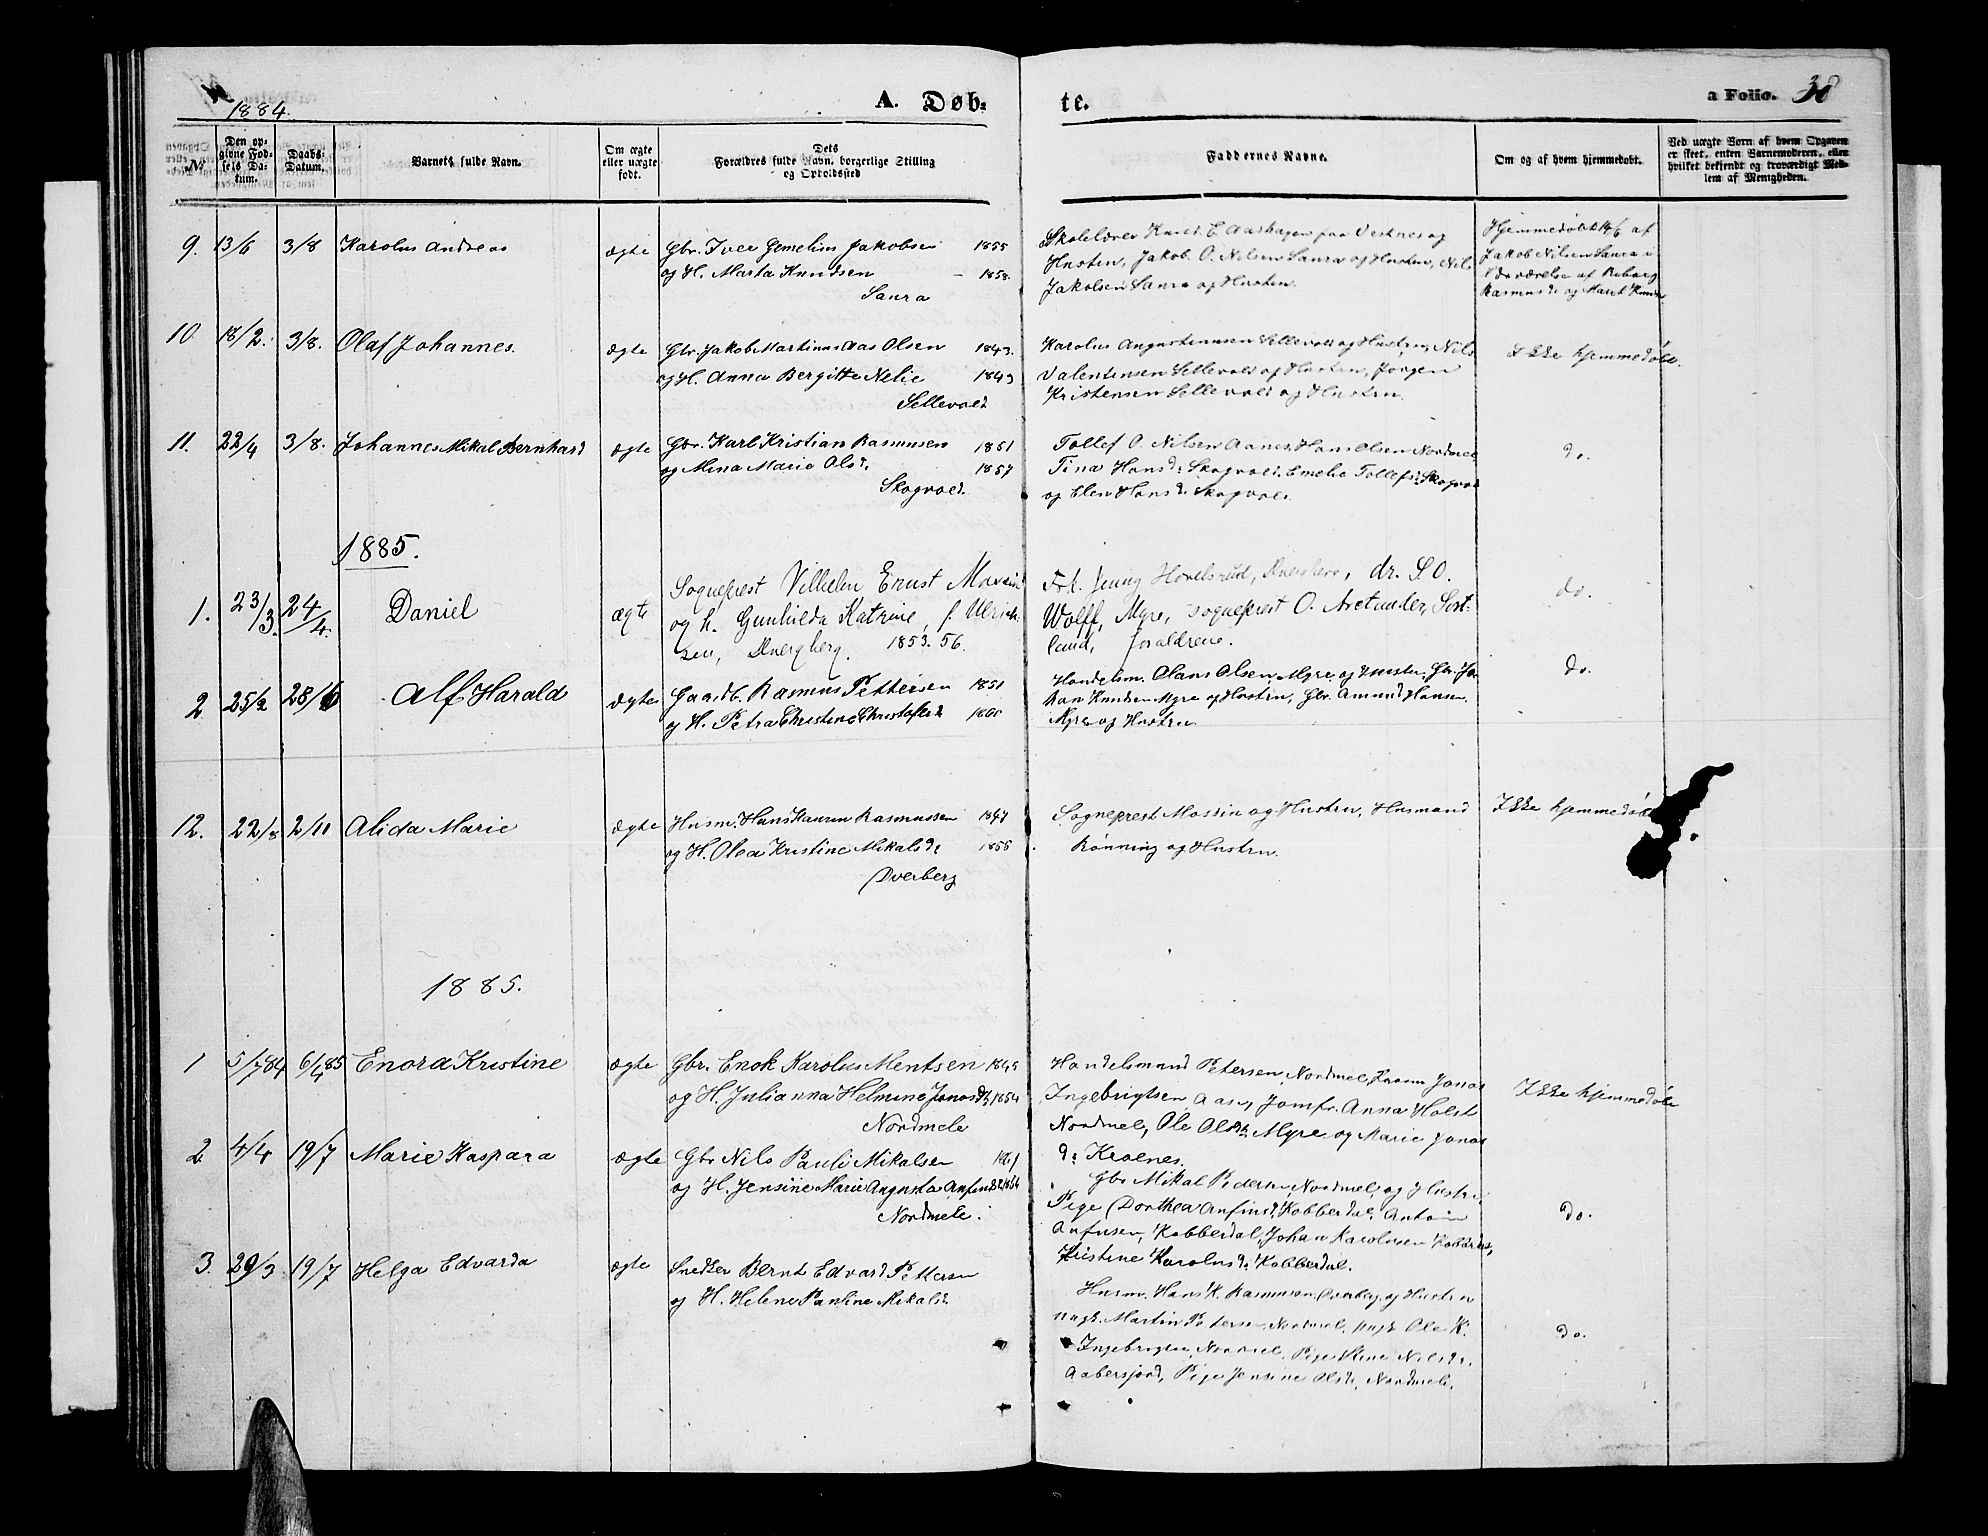 1884.
A. Døb=
te.
a Folio. 38
№
Den op-
givne Fød-
sels Da-
tum.
Daabs-
Datum.
Barnets fulde Navn.
Om ægte
eller uægte
født.
Dets
Forældres fulde Navn, borgerlige Stilling
og Opholdssted
Faddernes Navne.
Om og af hvem hjemmedøbt.
Ved uægte Børn af hvem Opgaven
er skeet, enten Barnemoderen, eller
hvilket bekjendt og troværdigt Med-
lem af Menigheden.
9. 13/6 3/8 Karolus Andreas ægte Gbr. Iver Gemelius Jakobsen 1855
og H. Marta Knudsen 1858
Saura
Skolelærer Knut E. Aashagen fra Vestnes og
Hustru, Jakob O. Nilsen Saura og Hustru, Nils
Jakobsen Saura og Hustru.
Hjemmedøbt af
Jakob Nilsen Saura i
Overværelse af
Rasmusd. og Marit
10 18/2. 3/8. Olaf Johannes. ægte Gbr. Jakob Martinus Aas Olsen 1843.
og H. Anna Bergitte Nelie 1849
Sellevold
Karolus Augustinusen Sellevold og Hustru, Nils
Valentinsen Sellevold og Hustru, Jørgen
Kristensen Sellevold og Hustru.
Ikke hjemmedøbt.
11. 22/4 3/8. Johannes Mikal Bernhard ægte Gbr. Karl Kristian Rasmusen 1851
og Mina Marie Olsd. 1857
Skogvold.
Tollef O. Nilsen Aanes, Hans Olsen Nordmel
Tina Hansd: Skogvold, Emelie Tollefsd. Skogvold
og Elen Hansd: Skogvold.
do.
1885.
1. 23/3. 24/4. Daniel ægte Sogneprest Vilhelm Ernst
og h. Gunhilda Katrine, f. Ulrich-
sen, Dverberg. 1853. 56.
Frk. Jenny Hovelsrud, Dverberg, dr. S. O.
Wolff, Myre, sogneprest O. Arctander, Sort-
land, forældrene.
do.
2 25/2 28/6 Alf Harald ægte Gaardb. Rasmus Pettersen 1851
og H. Petra Christine Christofersd. 1860
Handelsm. Hans Olsen, Myre og Hustru, Gbr. Jo-
han Knudsen Myre og Hustru, Gbr. Amund Hansen
Myre og Hustru
do.
12. 22/8 2/11 Alida Marie ægte Husm. Hans Rasmussen 1847
og H. Olea Kristine Mikalsd: 1855
Dverberg
Sogneprest Massin og Hustru, Husmand
Rønning og Hustru.
Ikke hjemmedøbt
1885.
1 5/7 84 6/4 85 Enora Kristine ægte Gbr. Enok Karolus Mentsen 1845
og H. Julianna Helmine Jonasd. 1854
Nordmele
Handelsmand Petersen, Nordmel, Jonas
Ingebrigtsen Aase, Jomfr. Anna Holst
Nordmel, Ole Myre og Marie Jonas
d: Kroenes.
Ikke hjemmedøbt
2 4/4 19/7 Marie Kaspara ægte Gbr Nils Pauli Mikalsen 1861
og H. Jensine Marie Augusta Anfinsd.
Nordmele.
Gbr Mikal Pedersen, Nordmel, og Hustru
Pige Dorthea Anfinsd. Kobberdal, Anton
Anfinsen, Kobberdal, Johan Karolusen Kobberdal,
Kristine Karolusd: Kobberdal.
do.
3. 29/3 19/7 Helga Edvarda ægte Snedker Bernt Edvard Pettersen
og H. Helene Pauline Mikalsd.
Husm. Hans K. Rasmussen, Dverberg og Hustru
ungk. Martin Pedersen, Nordmel, ungk. Ole K.
Ingebrigtsen, Nordmel, Pige Stine Nilsd.,
Aabersjord, Pige Jensine Olsd., Nordmele.
do.